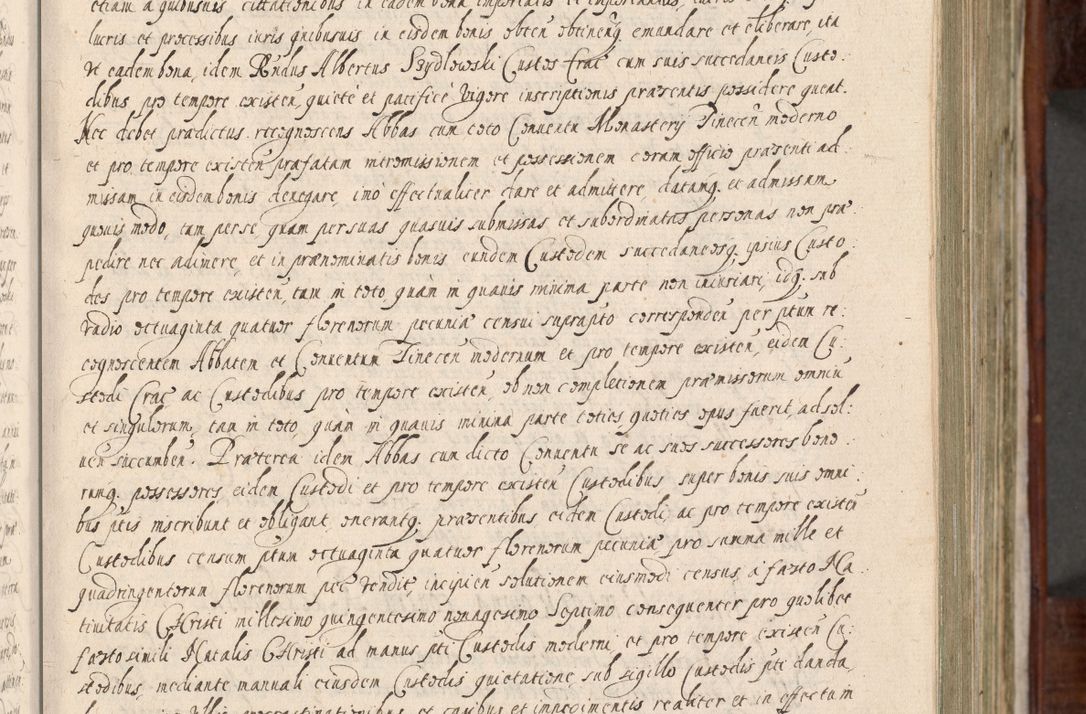 etiam a quibusuis cittationibus in eadem bona
lucris et processibus iuris quibusuis in eisdem bonis obten obtinenq emundare et eliberare, ita
vt eadem bona, idem Rndus Albertus Szydlowski Custos Crac cum suis succedaneis Custo:
dibus, pro tempore existen, quietè et pacificè vigore inscriptionis præsentis possidere queat.
Nec debet prædictus recognoscens Abbas cum toto Conuentu Monasterij Tinecen moderno
et pro tempore existen præfatam intromissionem et possessionem coram officio præsenti ad:
missam, in eisdem bonis denegare, imò effectualiter dare et admittere datamq. et admissam
quouis modo, tam per se quam per suas quasuis submissas et subordinatas personas non præ:
pedire nec adimere, et in prænominatis bonis eundem Custodem succedaneosq. ipsius Custo:
des pro tempore existen, tam in toto, quàm in quauis minima parte non iniuriari, idq. sub
vadio octuaginta quatuor florenorum pecuniæ censui suprapto corresponden per ptum re:
cognoscentem Abbatem et Conuentum Tinecen modernum et pro tempore existen, eidem Cu:
stodi Crac ac Custodibus pro tempore existen, ob non completionem præmissorum omniu
et singulorum, tam in toto, quàm in quauis minima parte toties quoties opus fuerit, ad sol:
uen succumben. Præterea idem Abbas cum dicto Conuentu se ac suos successores bono:
rumq. possessores, eidem Custodi et pro tempore existen Custodibus super bonis suis omni:
bus ptis inscribunt et obligant, onerantq. præsentibus eidem Custodi, ac pro tempore existen
Custodibus censum ptum octuaginta quatuor florenorum pecuniæ pro summa mille et
quadringentorum florenorum pec vendit, incipien solutionem eiusmodi census, à fæsto Na:
tiuitatis Christi millesimo quingentesimo nonagesimo Septimo consequenter pro quolibet
fæsto simili Natalis Christi ad manus pti Custodis moderni, et pro tempore existen Cu:
stodibus, mediante manuali eiusdem Custodis quietatione, sub sigillo Custodis pti danda,
et casibus et impedimentis realiter et in effectum